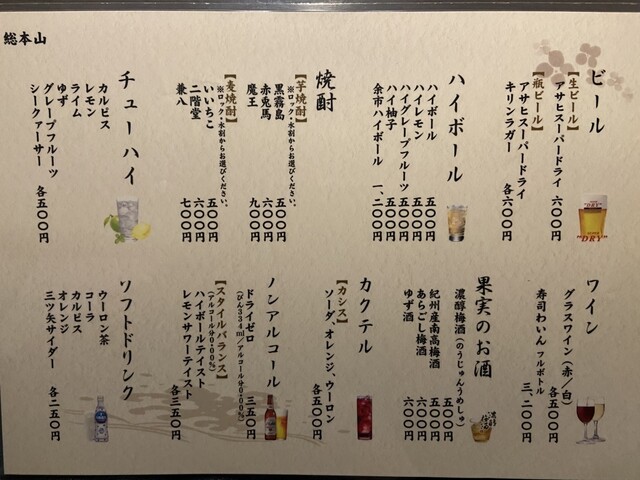 総本山
ビール
【生ビール】
アサヒスーパードライ 六〇〇円
【瓶ビール】
アサヒスーパードライ
キリンラガー 各六〇〇円
ハイボール
ハイボール 五〇〇円
ハイレモン 五〇〇円
ハイグレープフルーツ 五〇〇円
ハイ柚子 五〇〇円
余市ハイボール 一、二〇〇円
焼酎
【芋焼酎】
※ロック・水割からお選びください。
黒霧島 五〇〇円
赤兎馬 六〇〇円
魔王 九〇〇円
【麦焼酎】
※ロック・水割からお選びください。
いいちこ 五〇〇円
二階堂 六〇〇円
兼八 七〇〇円
チューハイ
カルピス
レモン
ライム
ゆず
グレープフルーツ
シークァーサー 各五〇〇円
ワイン
グラスワイン(赤/白) 各五〇〇円
寿司わいん フルボトル 三、二〇〇円
果実のお酒
濃醇梅酒(のうじゅんうめしゅ) 五〇〇円
紀州産南高梅酒 五〇〇円
あらごし梅酒 六〇〇円
ゆず酒 六〇〇円
カクテル
【カシス】
ソーダ、オレンジ、ウーロン 各五〇〇円
ノンアルコール
ドライゼロ 三五〇円
(びん334ml/アルコール分0.00%)
【スタイルバランス】
(アルコール分0.00%)
ハイボールテイスト
レモンサワーテイスト 各三五〇円
ソフトドリンク
ウーロン茶
コーラ
カルピス
オレンジ
三ツ矢サイダー 各二五〇円
"DRY"
SUPER
"DRY"